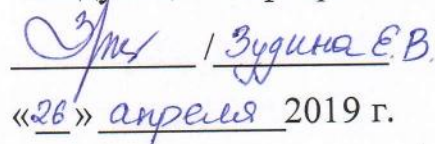 / Зудина Е.В.
«26» апреля 2019 г.